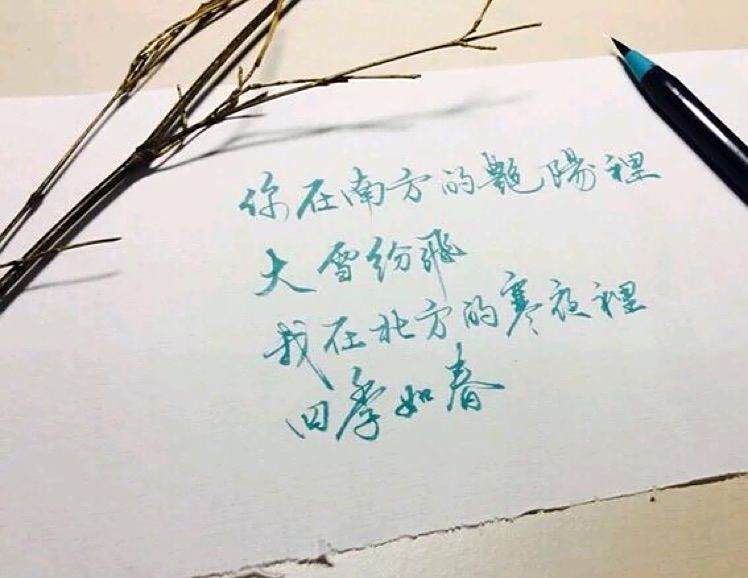 你在南方的艷陽裡
大雪紛飛
我在北方的寒夜裡
四季如春